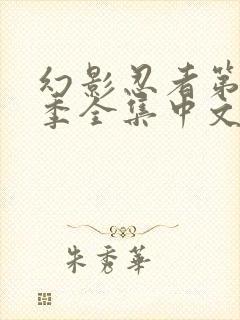 幻影忍者第
季全集中文
朱秀華